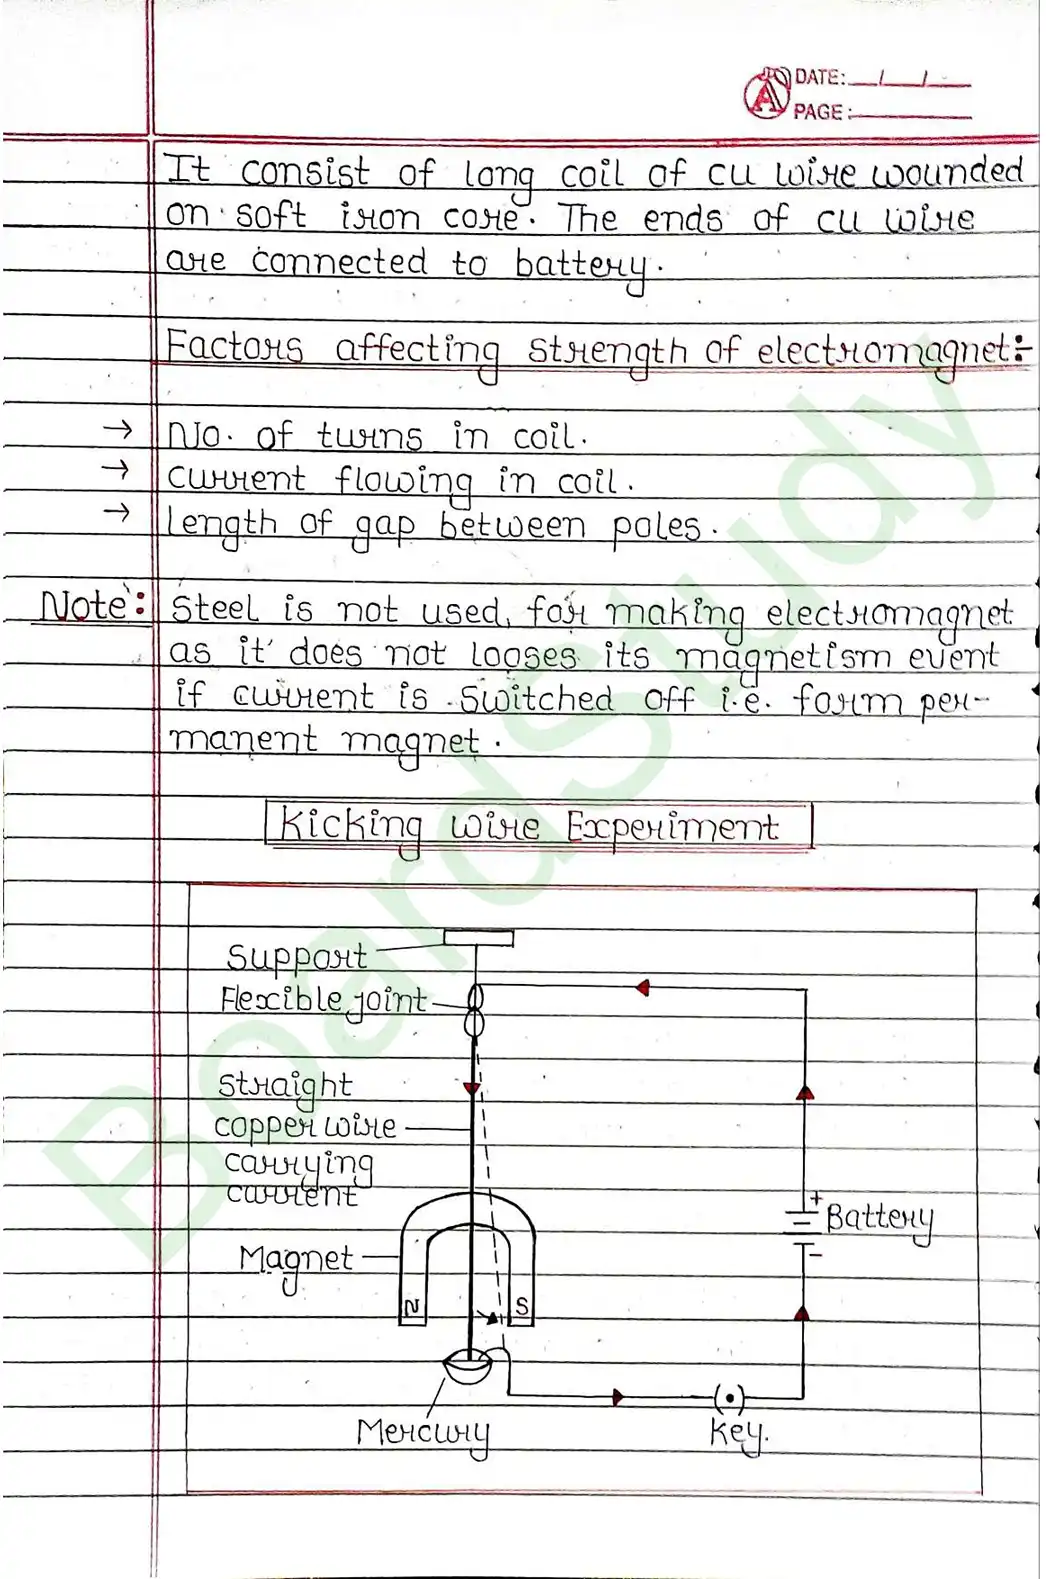 DATE: __/__/__
PAGE:
It consist of long coil of cu wire wounded
on soft iron core. The ends of cu wire
are connected to battery.
Factors affecting strength of electromagnet:-
→ No. of turns in coil.
→ current flowing in coil.
→ length of gap between poles.
Note: Steel is not used, for making electromagnet
as it does not looses its magnetism event
if current is switched off i.e. form per-
manent magnet.
Kicking wire Experiment
Support
Flexible joint
straight
copper wire
carrying
current
+
Battery
-
Magnet
N
S
Mercury
Key.
BoardStudy